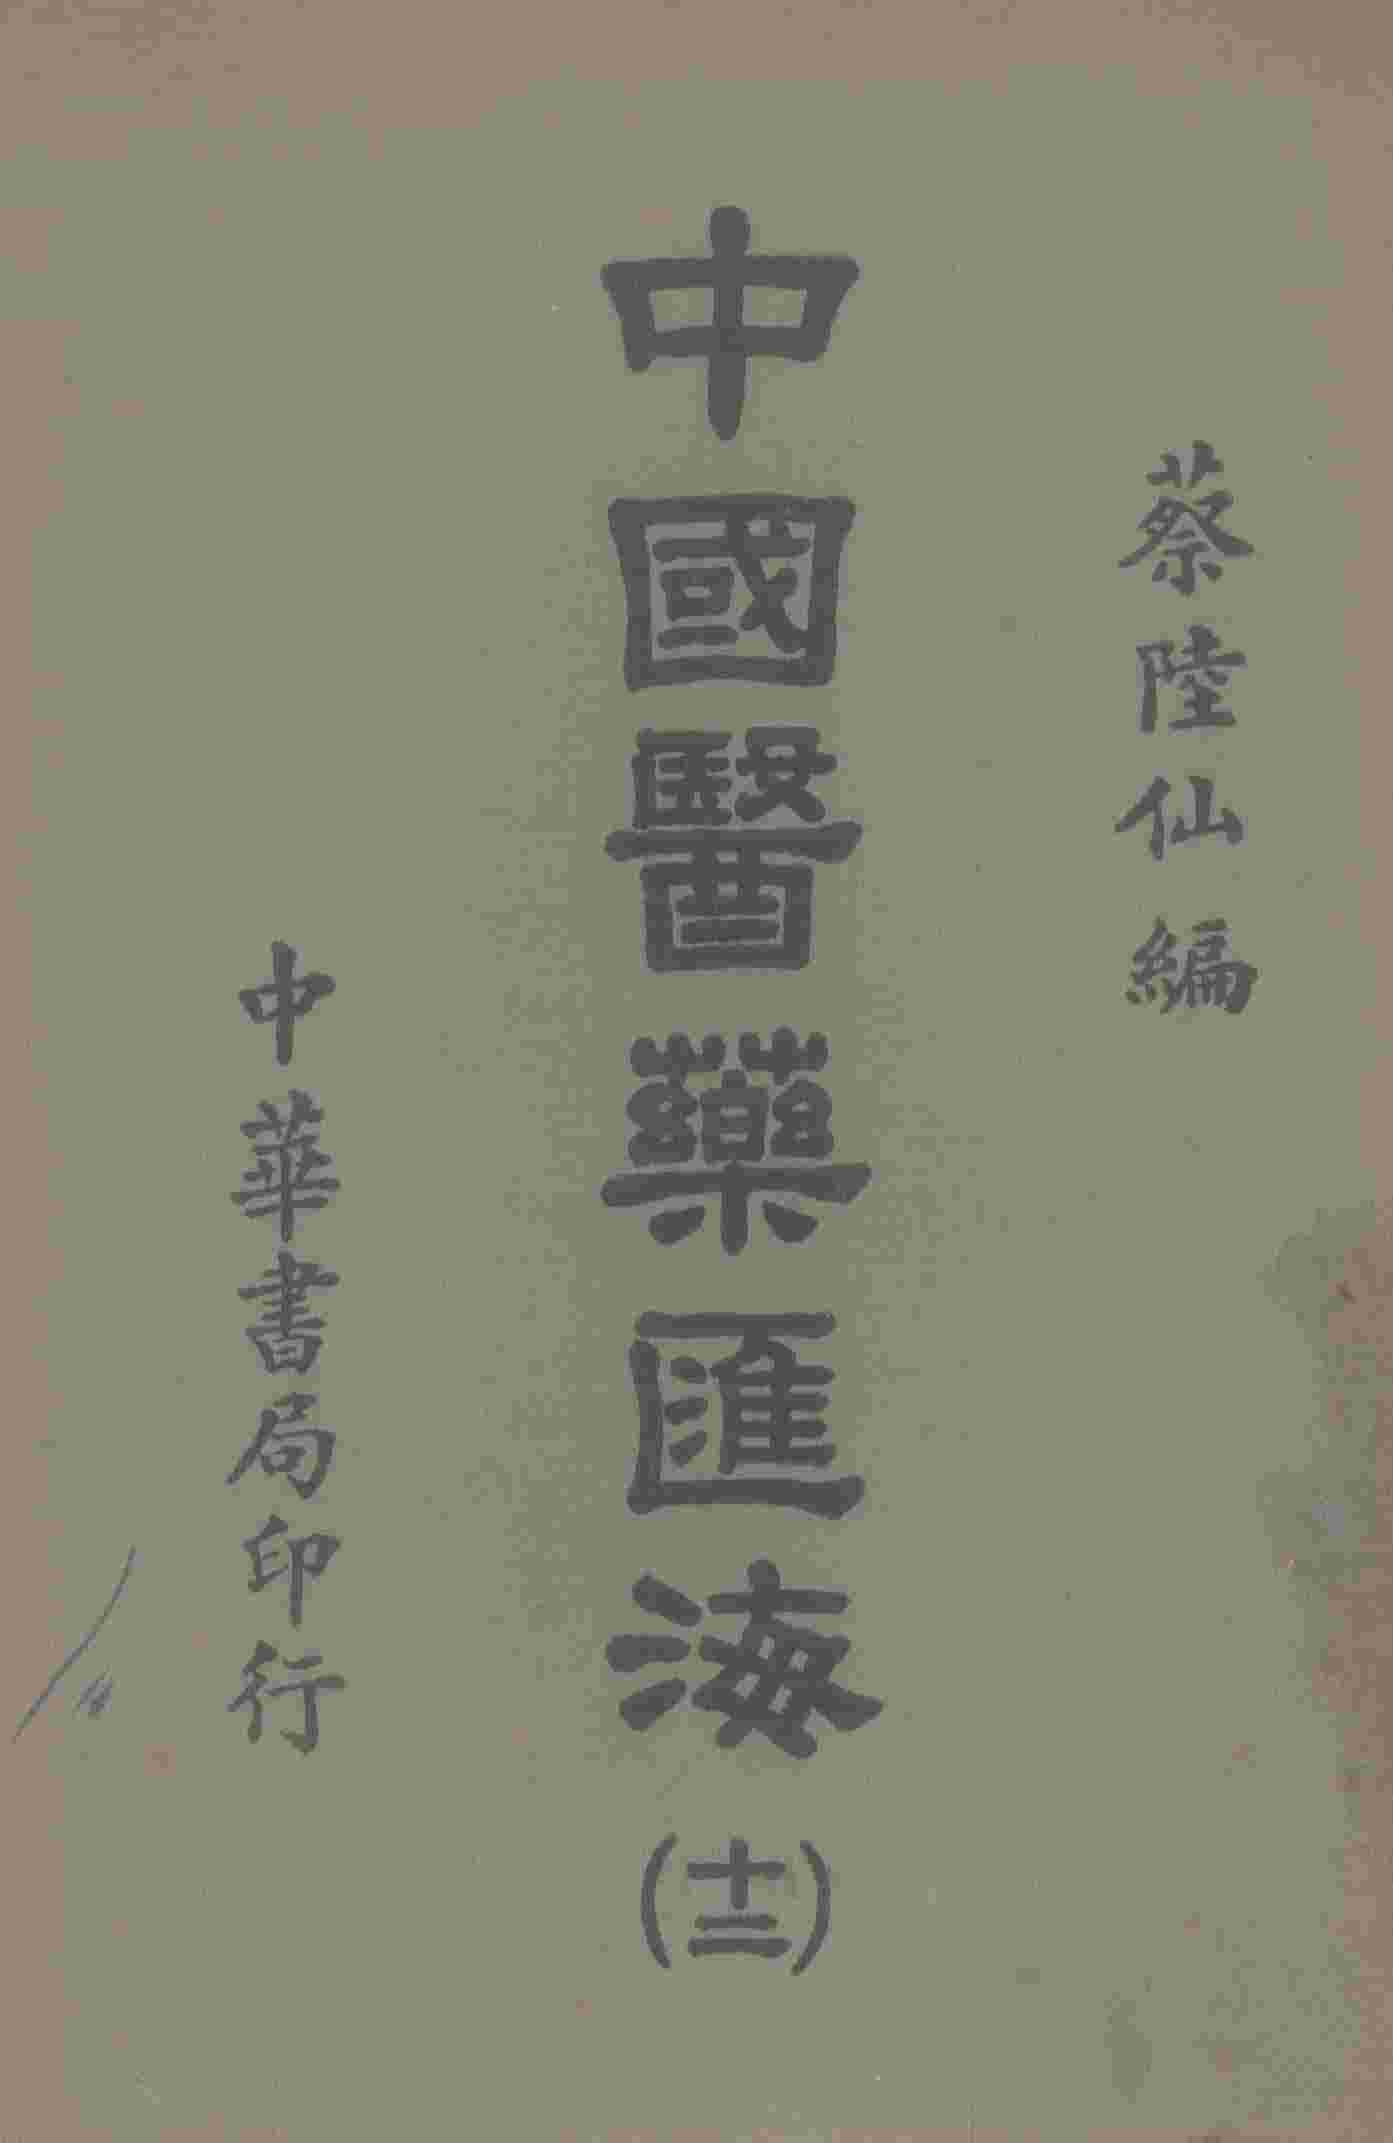 蔡陸仙編
中國醫藥匯海(十二)
中華書局印行